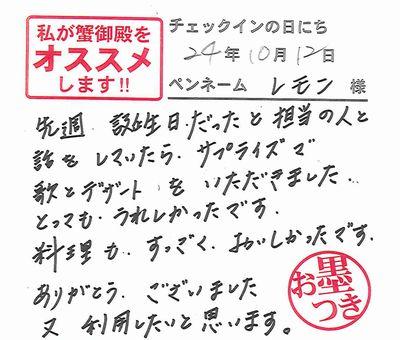 私が蟹御殿を
オススメ
します!!
チェックインの日にち
24年10月12日
ペンネーム レモン 様
先週 誕生日だったと担当の人と
話をしていたら、サプライズで
歌とデザートをいただきました。
とっても、うれしかったです。
料理も、すっごく、おいしかったです。
ありがとう、ございました
又 利用したいと思います。
お墨つき